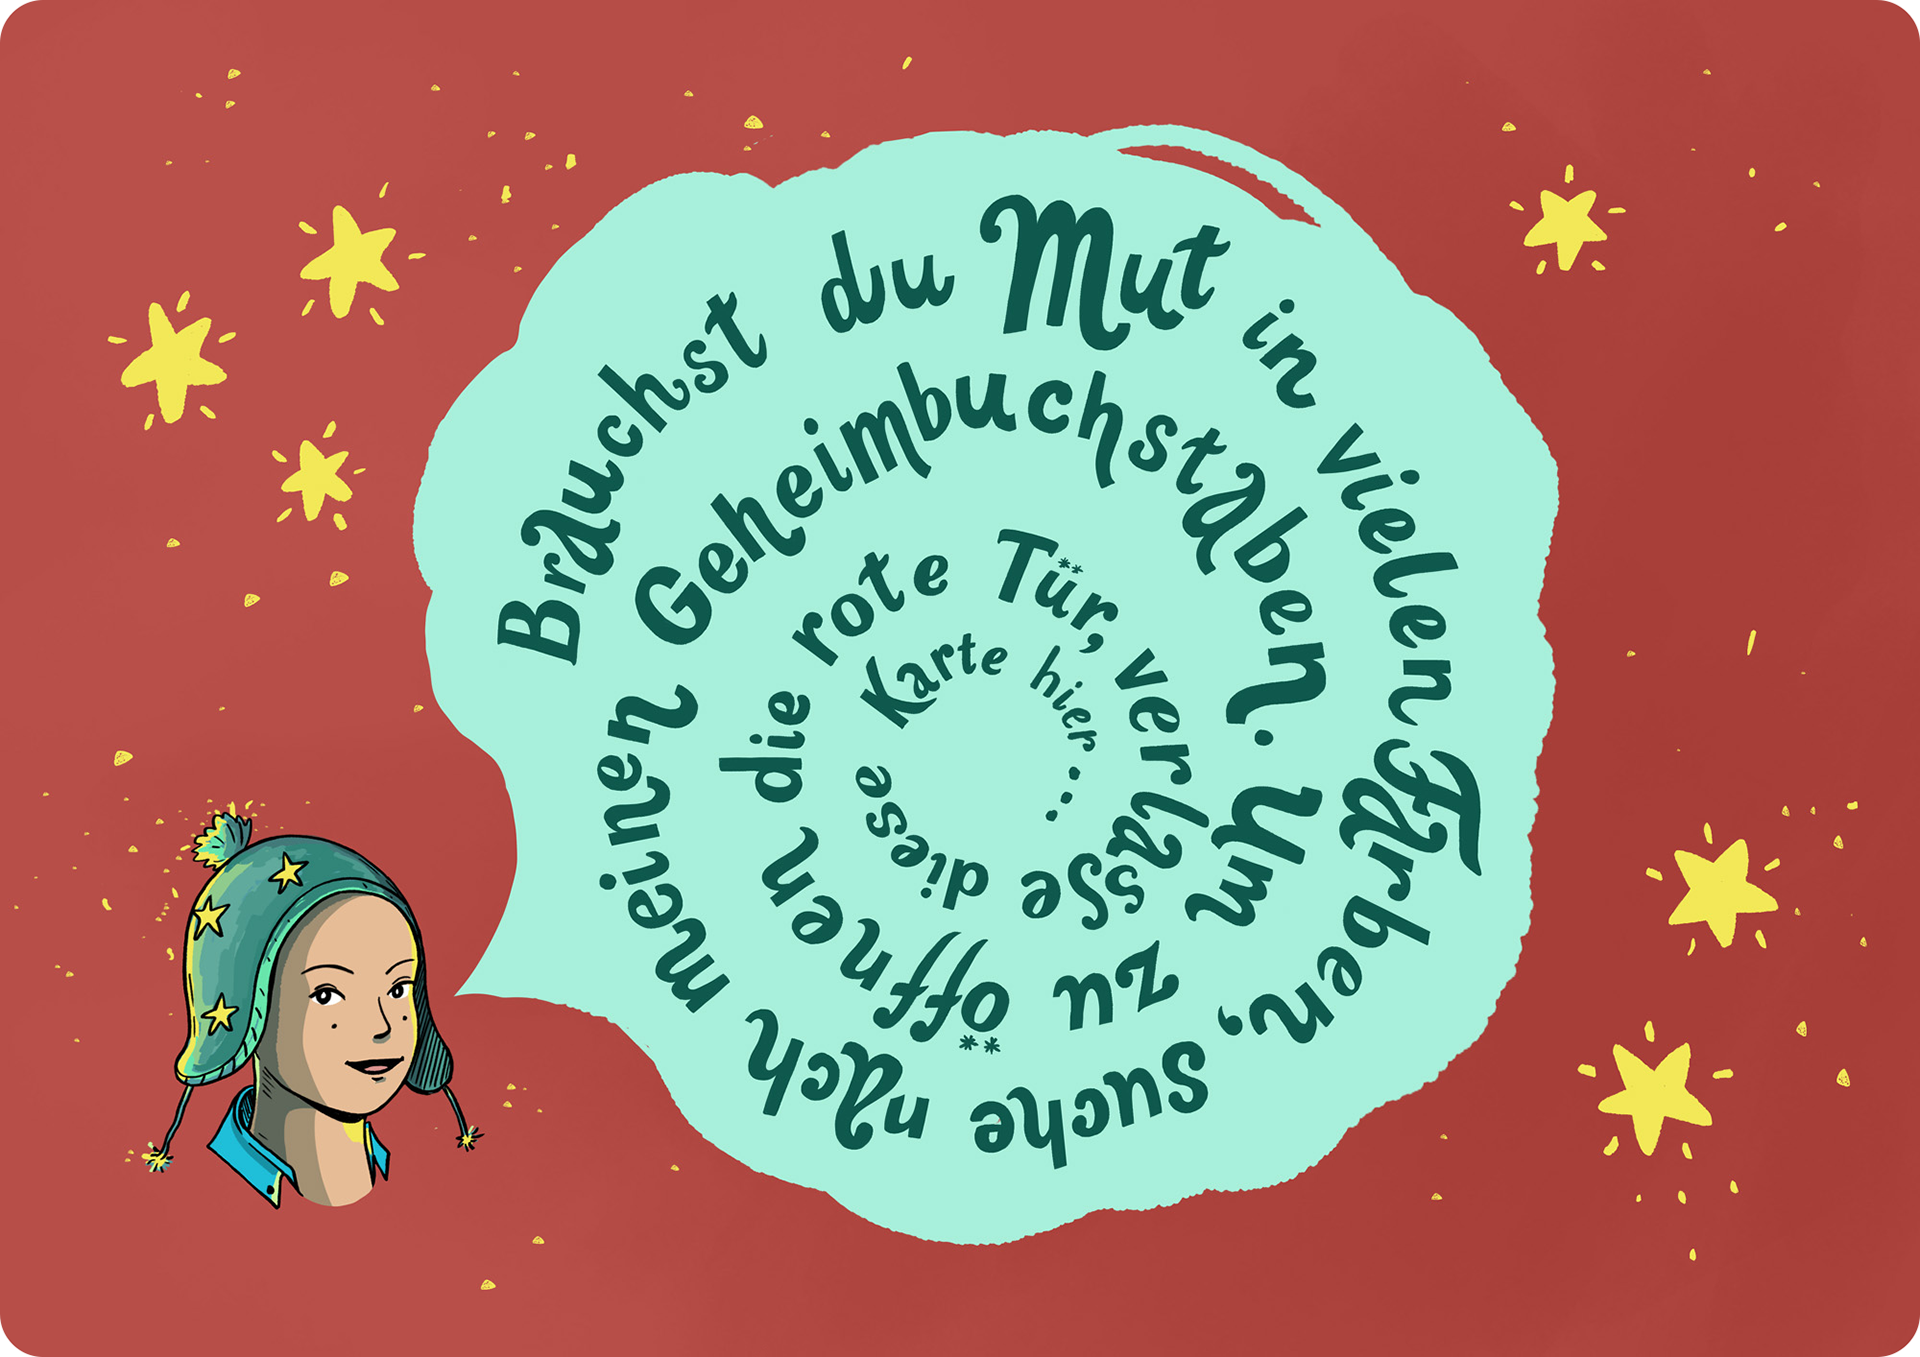 Brauchst du Mut in vielen Farben, suche nach meinen Geheimbuchstaben. Um zu öffnen die rote Tür, verlasse diese Karte hier...